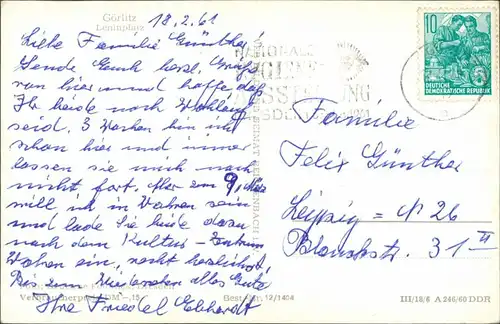 Görlitz
Leninplatz
18.2.61
Liebe Familie Günther!
Sende Euch herzl. Grüße
von hier und hoffe, daß
Ihr beide noch Wohlauf
seid. 3 Wochen bin ich
schon hier und immer
lassen sie mich noch
nicht fort. Aber am 9. März
will ich in Wahren sein
und lade Sie beide dazu
nach dem Kultur-Zentrum
Wahren ein, recht herzlichst,
Bis zum Wiedersehn alles Gute
Ihre Friedel Ekhardt
Verbraucherpreis DM -,15
Best.-Nr. 12/1404
NATIONALE
10
DEUTSCHE
DEMOKRATISCHE REPUBLIK
Familie
Felix Günther
Leipzig - N 26
31 II
III/18/6 A 246/60 DDR